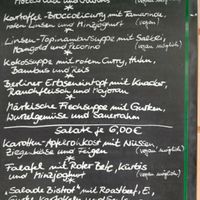 (vegan möglich)
* Kartoffel-Broccolicurry mit Tamarinde,
roten Linsen und Minzjoghurt (vegan)
* Linsen-Topinambursuppe mit Sellerie,
Mangold und Pecorino (vegan möglich)
* Kokossuppe mit rotem Curry, Huhn,
Bambus und Reis
* Berliner Erbseneintopf mit Kasseler,
Rauchfleisch und Majoran
* Märkische Fischsuppe mit Gurken,
Wurzelgemüse und Sauerrahm
Salate je 6,00€
Karotten-Apfelrohkost mit Nüssen,
Ziegenkäse und Feigen (vegan möglich)
* Falafel mit Roter Bete, Kürbis
und Minzjoghurt (vegan möglich)
* "Salade Bistrot" mit Roastbeef, Ei,